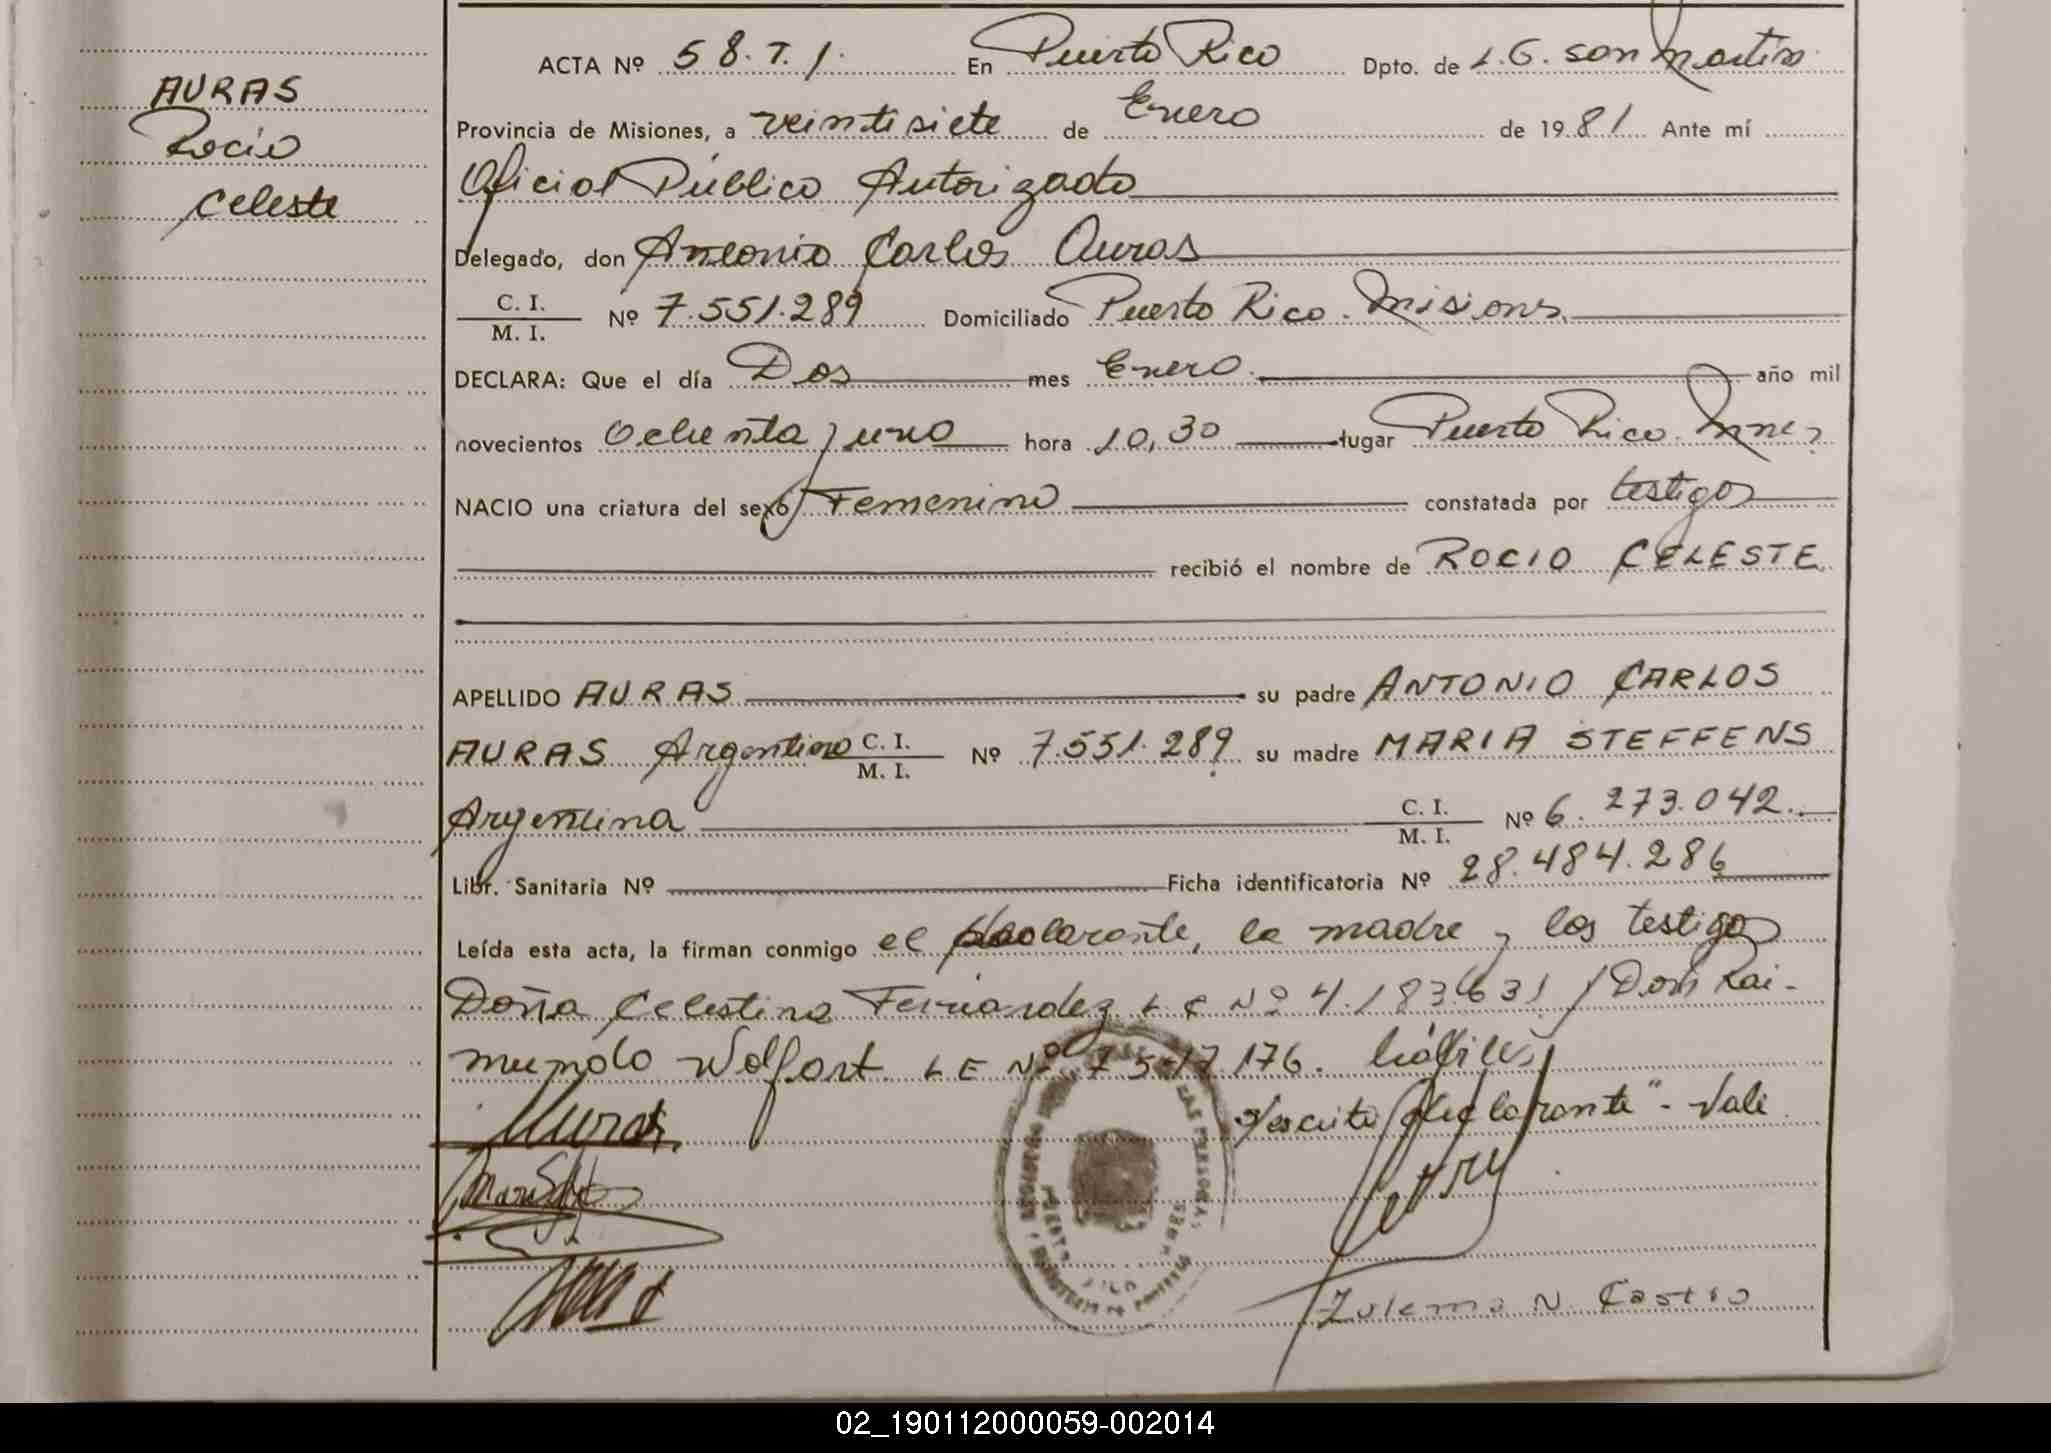 AURAS
Rocio
Celeste
ACTA Nº 58. T. 1. En Puerto Rico Dpto. de L. G. San Martin
Provincia de Misiones, a veintisiete de Enero de 1981 Ante mí
Oficial Público Autorizado
Delegado, don Antonio Carlos Auras
C. I. / M. I. Nº 7.551.289 Domiciliado Puerto Rico. Misiones
DECLARA: Que el día Dos mes Enero. año mil
novecientos Ochenta y uno hora 10,30 lugar Puerto Rico. Mnes
NACIO una criatura del sexo Femenino constatada por testigos
recibió el nombre de ROCIO CELESTE
APELLIDO AURAS su padre ANTONIO CARLOS
AURAS Argentino C. I. / M. I. Nº 7.551.289 su madre MARIA STEFFENS
Argentina C. I. / M. I. Nº 6.273.042.
Libr. Sanitaria Nº Ficha identificatoria Nº 28.484.286
Leída esta acta, la firman conmigo el declarante, la madre y los testigos
Doña Celestina Fernandez L C Nº 4.183.631 y Don Rai-
mundo Wolfart L E Nº 7 517 176. hábiles
S/escrito "declarante" - Vale
Auras
Zulema N. Castro
PUERTO RICO
02_190112000059-002014